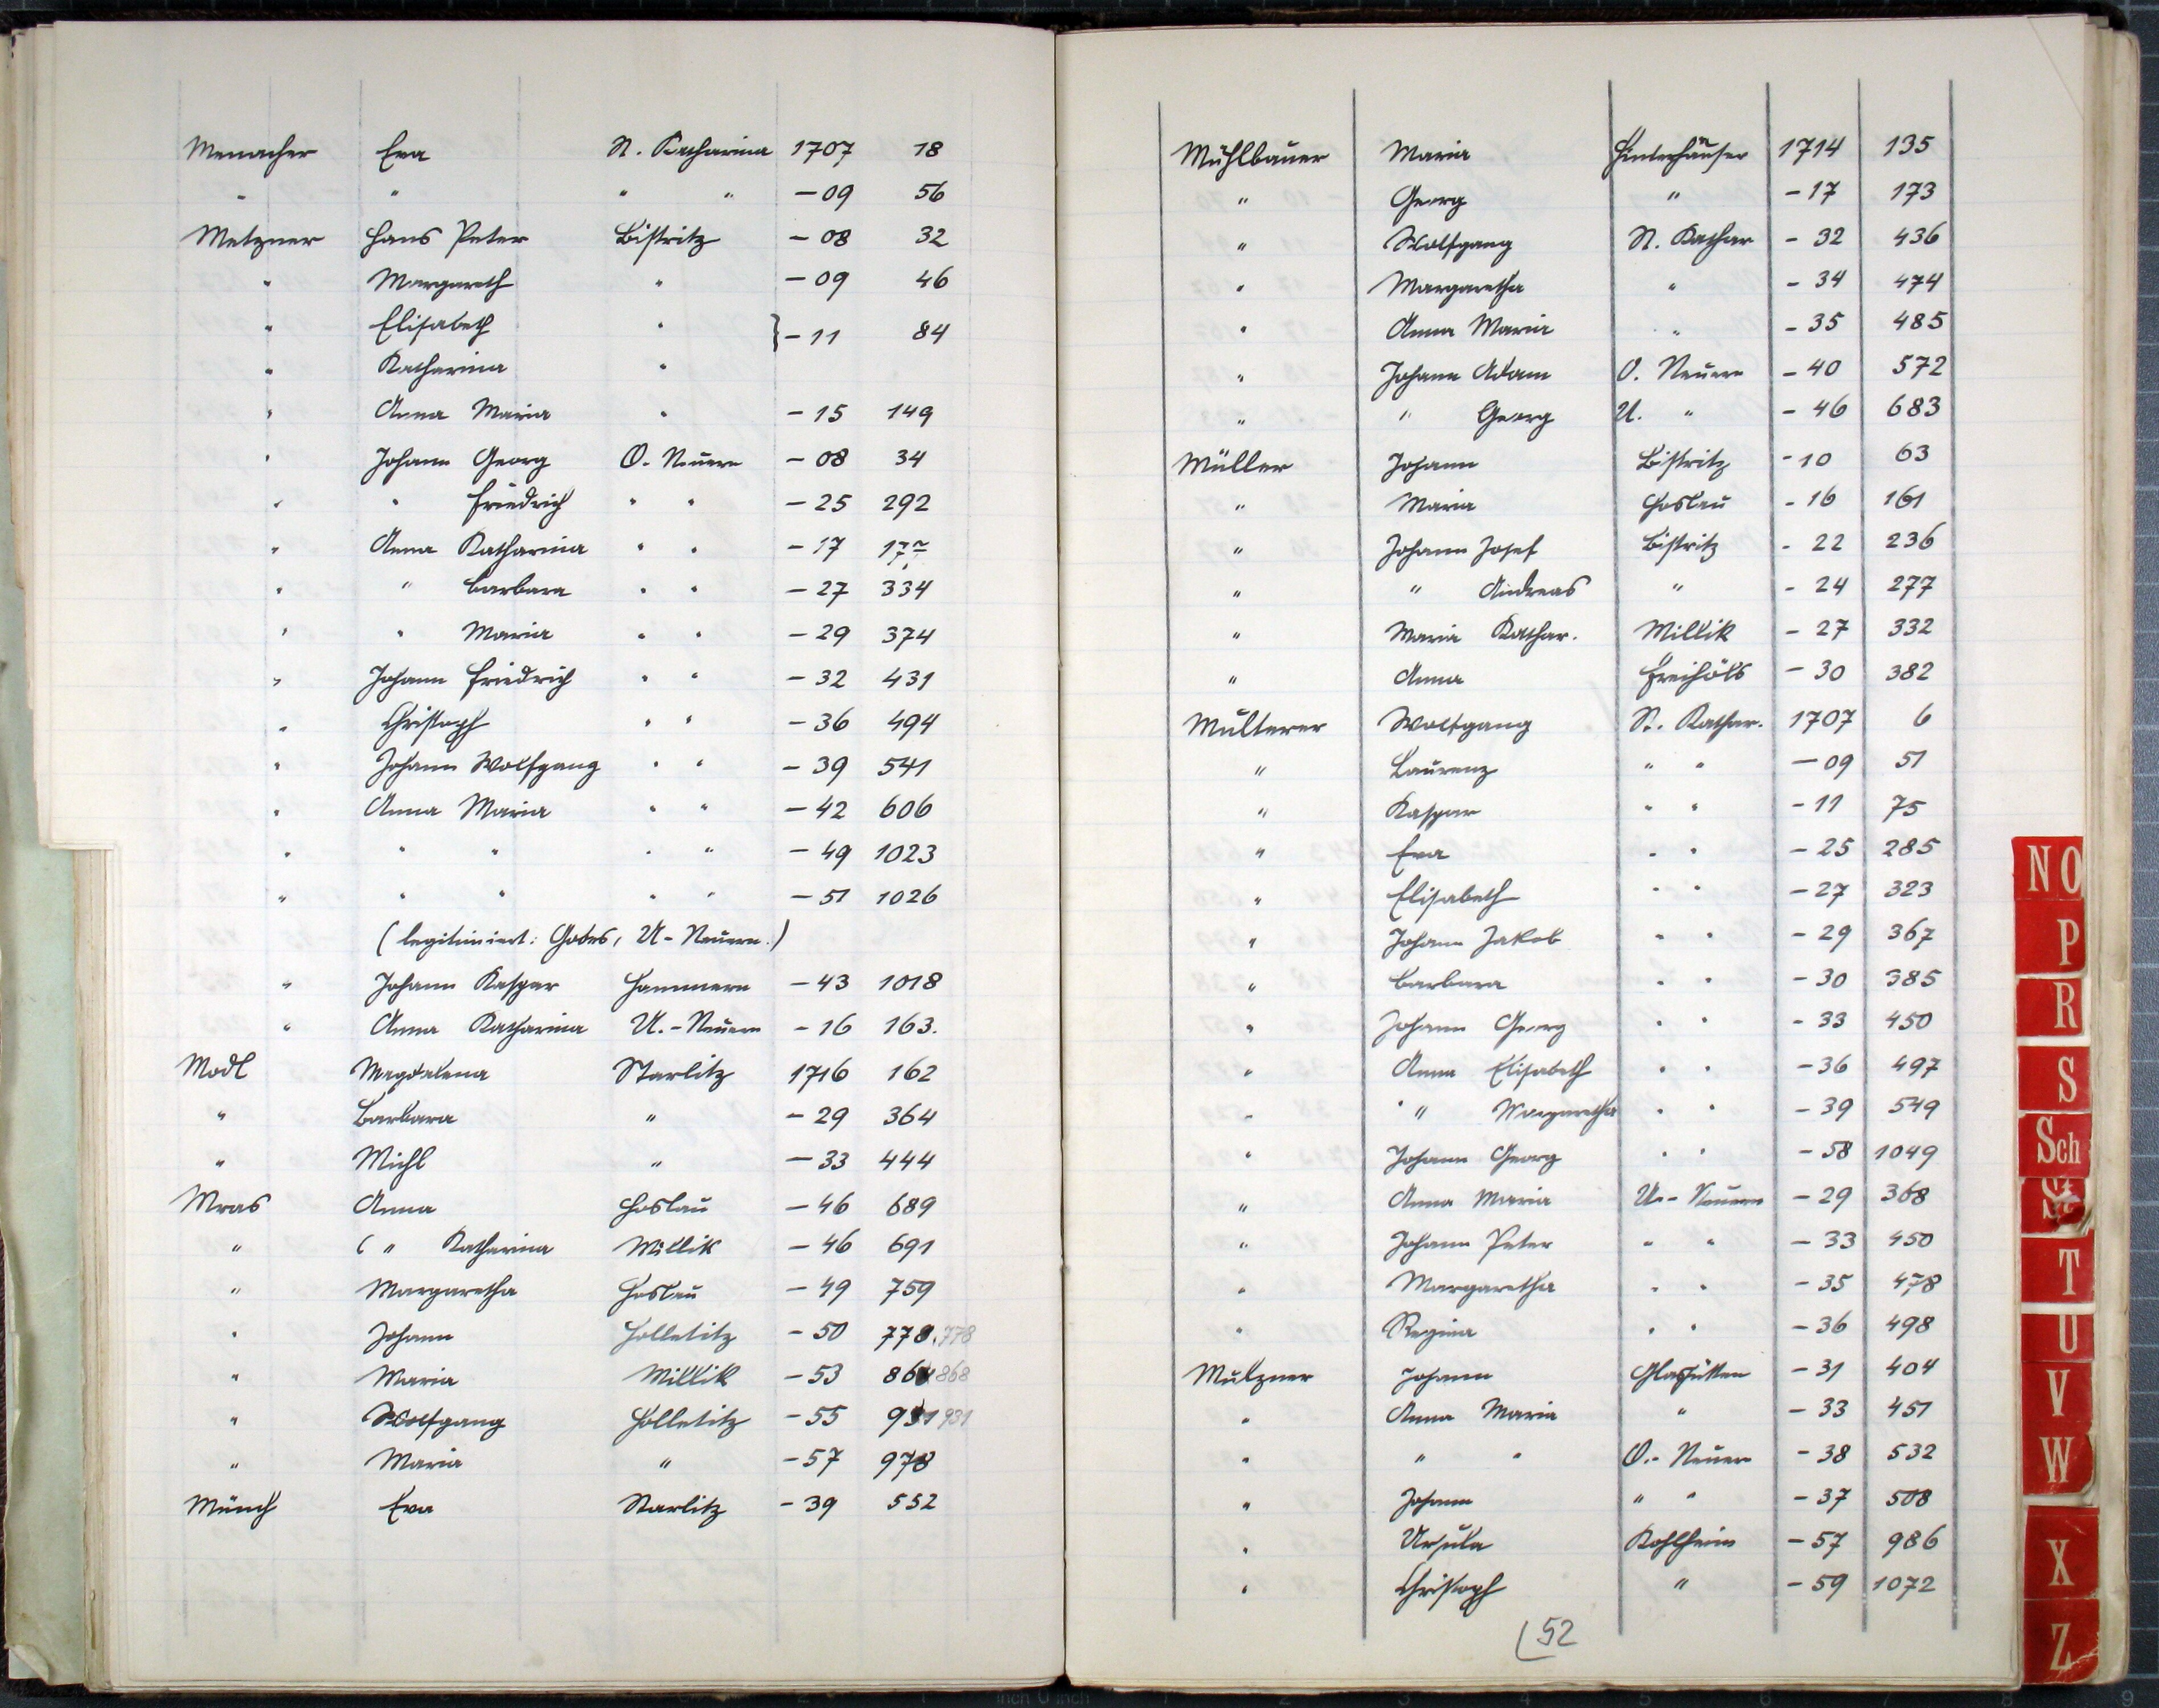 Menacher Eva St. Katharina 1707 18
" " " " -09 56
Metzner Hans Peter Bistritz -08 32
" Margareth " -09 46
" Elisabeth " } -11 84
" Katharina "
" Anna Maria " -15 149
" Johann Georg O. Neuern -08 34
" " Friedrich " " -25 292
" Anna Katharina " " -17
" " Barbara " " -27 334
" " Maria " " -29 374
" Johann Friedrich " " -32 431
" Christoph " " -36 494
" Johann Wolfgang " " -39 541
" Anna Maria " " -42 606
" " " " " -49 1023
" " " " " -51 1026
(legitimiert: U-Neuern.)
" Johann Kaspar Hammern -43 1018
" Anna Katharina U.-Neuern -16 163.
Modl Magdalena Starlitz 1716 162
" Barbara " -29 364
" Michl " -33 444
Mras Anna Hoslau -46 689
" ( " Katharina Millik -46 691
" Margaretha Hoslau -49 759
" Johann Holletitz -50 778. 778
" Maria Millik -53 868 868
" Wolfgang Holletitz -55 931 931
" Maria " -57 978
Münch Eva Starlitz -39 552
Mühlbauer Maria Hinterhäuser 1714 135
" Georg " -17 173
" Wolfgang St. Kathar -32 436
" Margaretha " -34 474
" Anna Maria " -35 485
" Johann Adam O. Neuern -40 572
" " Georg U. " -46 683
Müller Johann Bistritz -10 63
" Maria Hoslau -16 161
" Johann Josef Bistritz -22 236
" " Andreas " -24 277
" Maria Kathar. Millik -27 332
" Anna Freihöls -30 382
Multerer Wolfgang St. Kathar. 1707 6
" Laurenz " " -09 51
" Kaspar " " -11 75
" Eva " " -25 285
" Elisabeth " " -27 323
" Johann Jakob " " -29 367
" Barbara " " -30 385
" Johann Georg " " -33 450
" Anna Elisabeth " " -36 497
" " Margaretha " " -39 549
" Johann Georg " " -58 1049
" Anna Maria U.-Neuern -29 368
" Johann Peter " " -33 450
" Margaretha " " -35 478
" Regina " " -36 498
Mulzner Johann Glashütten -31 404
" Anna Maria " -33 451
" " " O.-Neuern -38 532
" Johann " " -37 508
" Ursula Kohlheim -57 986
" Christoph " -59 1072
52
NO
P
R
S
Sch
T
U
V
W
X
Z